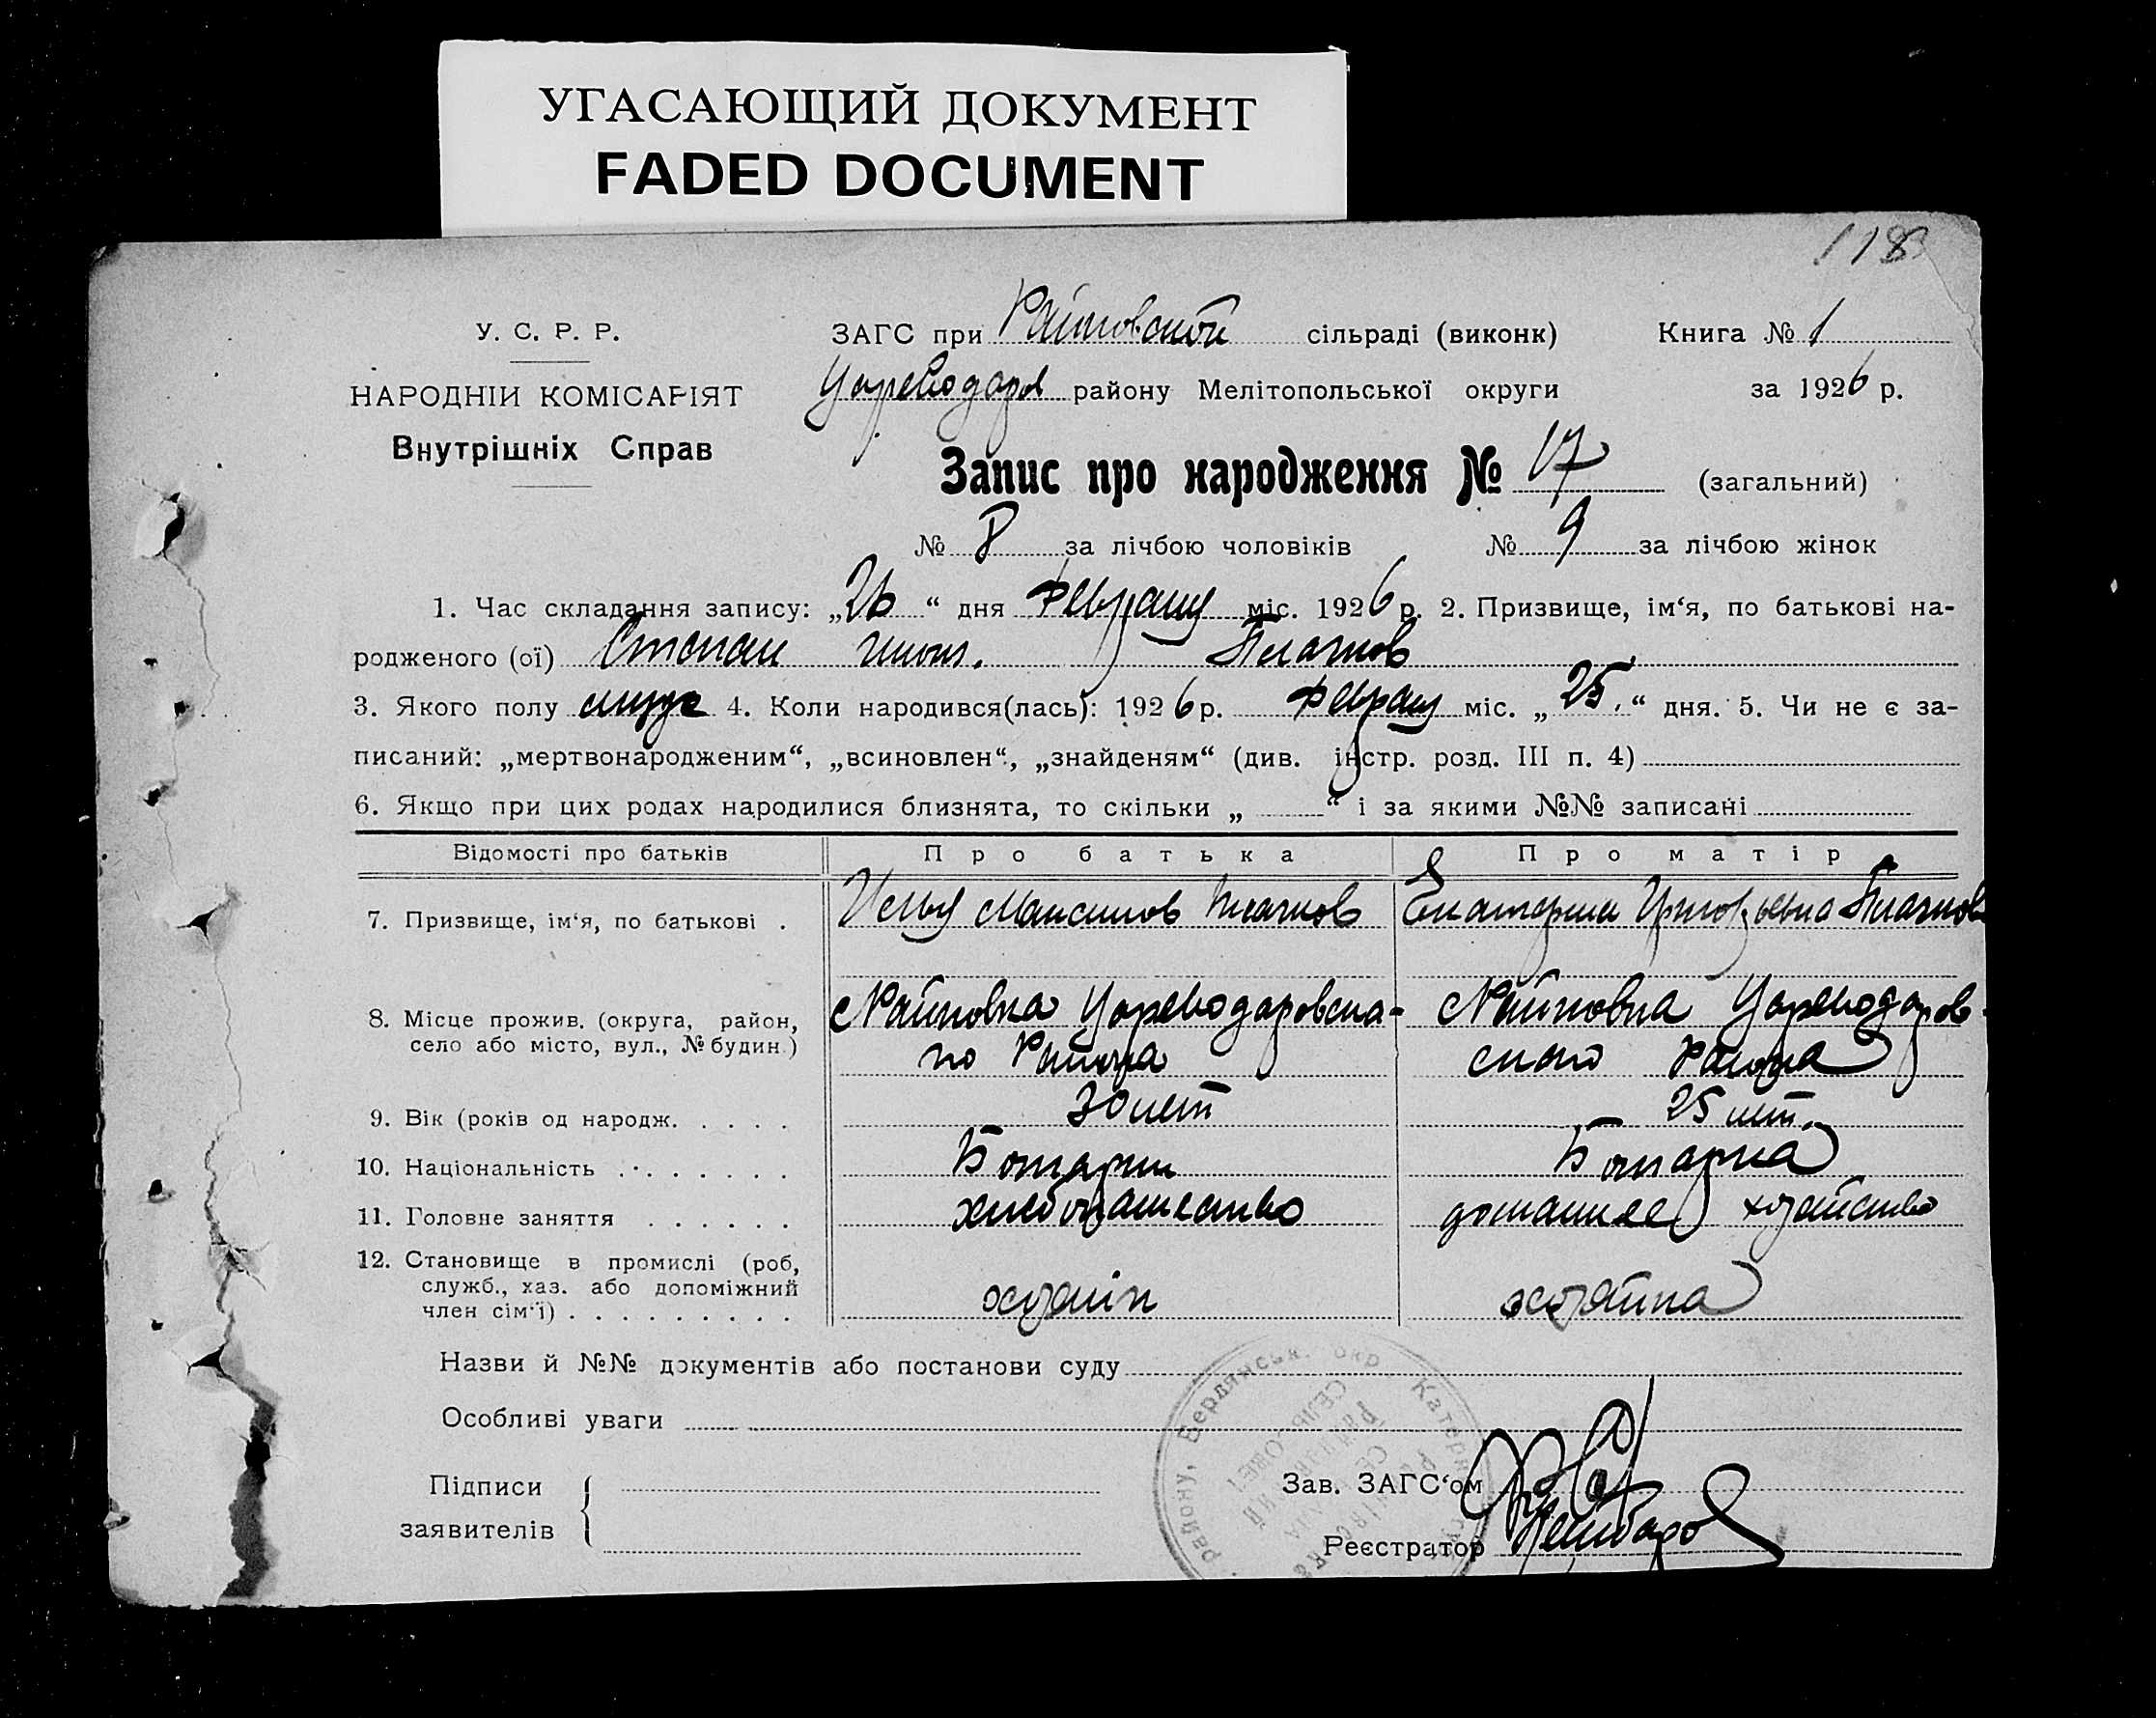 УГАСАЮЩИЙ ДОКУМЕНТ
FADED DOCUMENT
118
У. С. Р. Р.
НАРОДНІЙ КОМІСАРІЯТ
Внутрішніх Справ
ЗАГС при Райновской сільраді (виконк)
Цареводаров району Мелітопольської округи
Книга № 1
за 1926 р.
Запис про народження № 17 (загальний)
№ 8 за лічбою чоловіків № 9 за лічбою жінок
1. Час складання запису: „26“ дня Февраля міс. 1926 р. 2. Призвище, ім‘я, по батькові на-
родженого (ої) Степан Плачков
3. Якого полу 4. Коли народився(лась): 1926 р. Февраля міс. „25.“ дня. 5. Чи не є за-
писаний: „мертвонародженим“, „всиновлен“, „знайденям“ (див. інстр. розд. III п. 4)
6. Якщо при цих родах народилися близнята, то скільки „ “ і за якими №№ записані
Відомості про батьків Про батька Про матір
7. Призвище, ім‘я, по батькові . Илья Максимов Плачков Екатерина Григорьевна Плачков
8. Місце прожив. (округа, район, село або місто, вул., № будин.) с Райновка Цареводаровска- с Райновка Цареводаров-
го Района скаго Района
9. Вік (років од народж. . . . . 30 лет 25 лет.
10. Національність . . . . . . . Болгарин Болгарка
11. Головне заняття . . . . . . хлебопашество домашнее хозяйство
12. Становище в промислі (роб,
служб., хаз. або допоміжний
член сім‘ї) . . . . . . . . . хозяін хозяйка
Назви й №№ документів або постанови суду
Особливі уваги
Підписи
заявителів
Зав. ЗАГС‘ом
Реєстратор
району, Бердянськ. окр. Катер